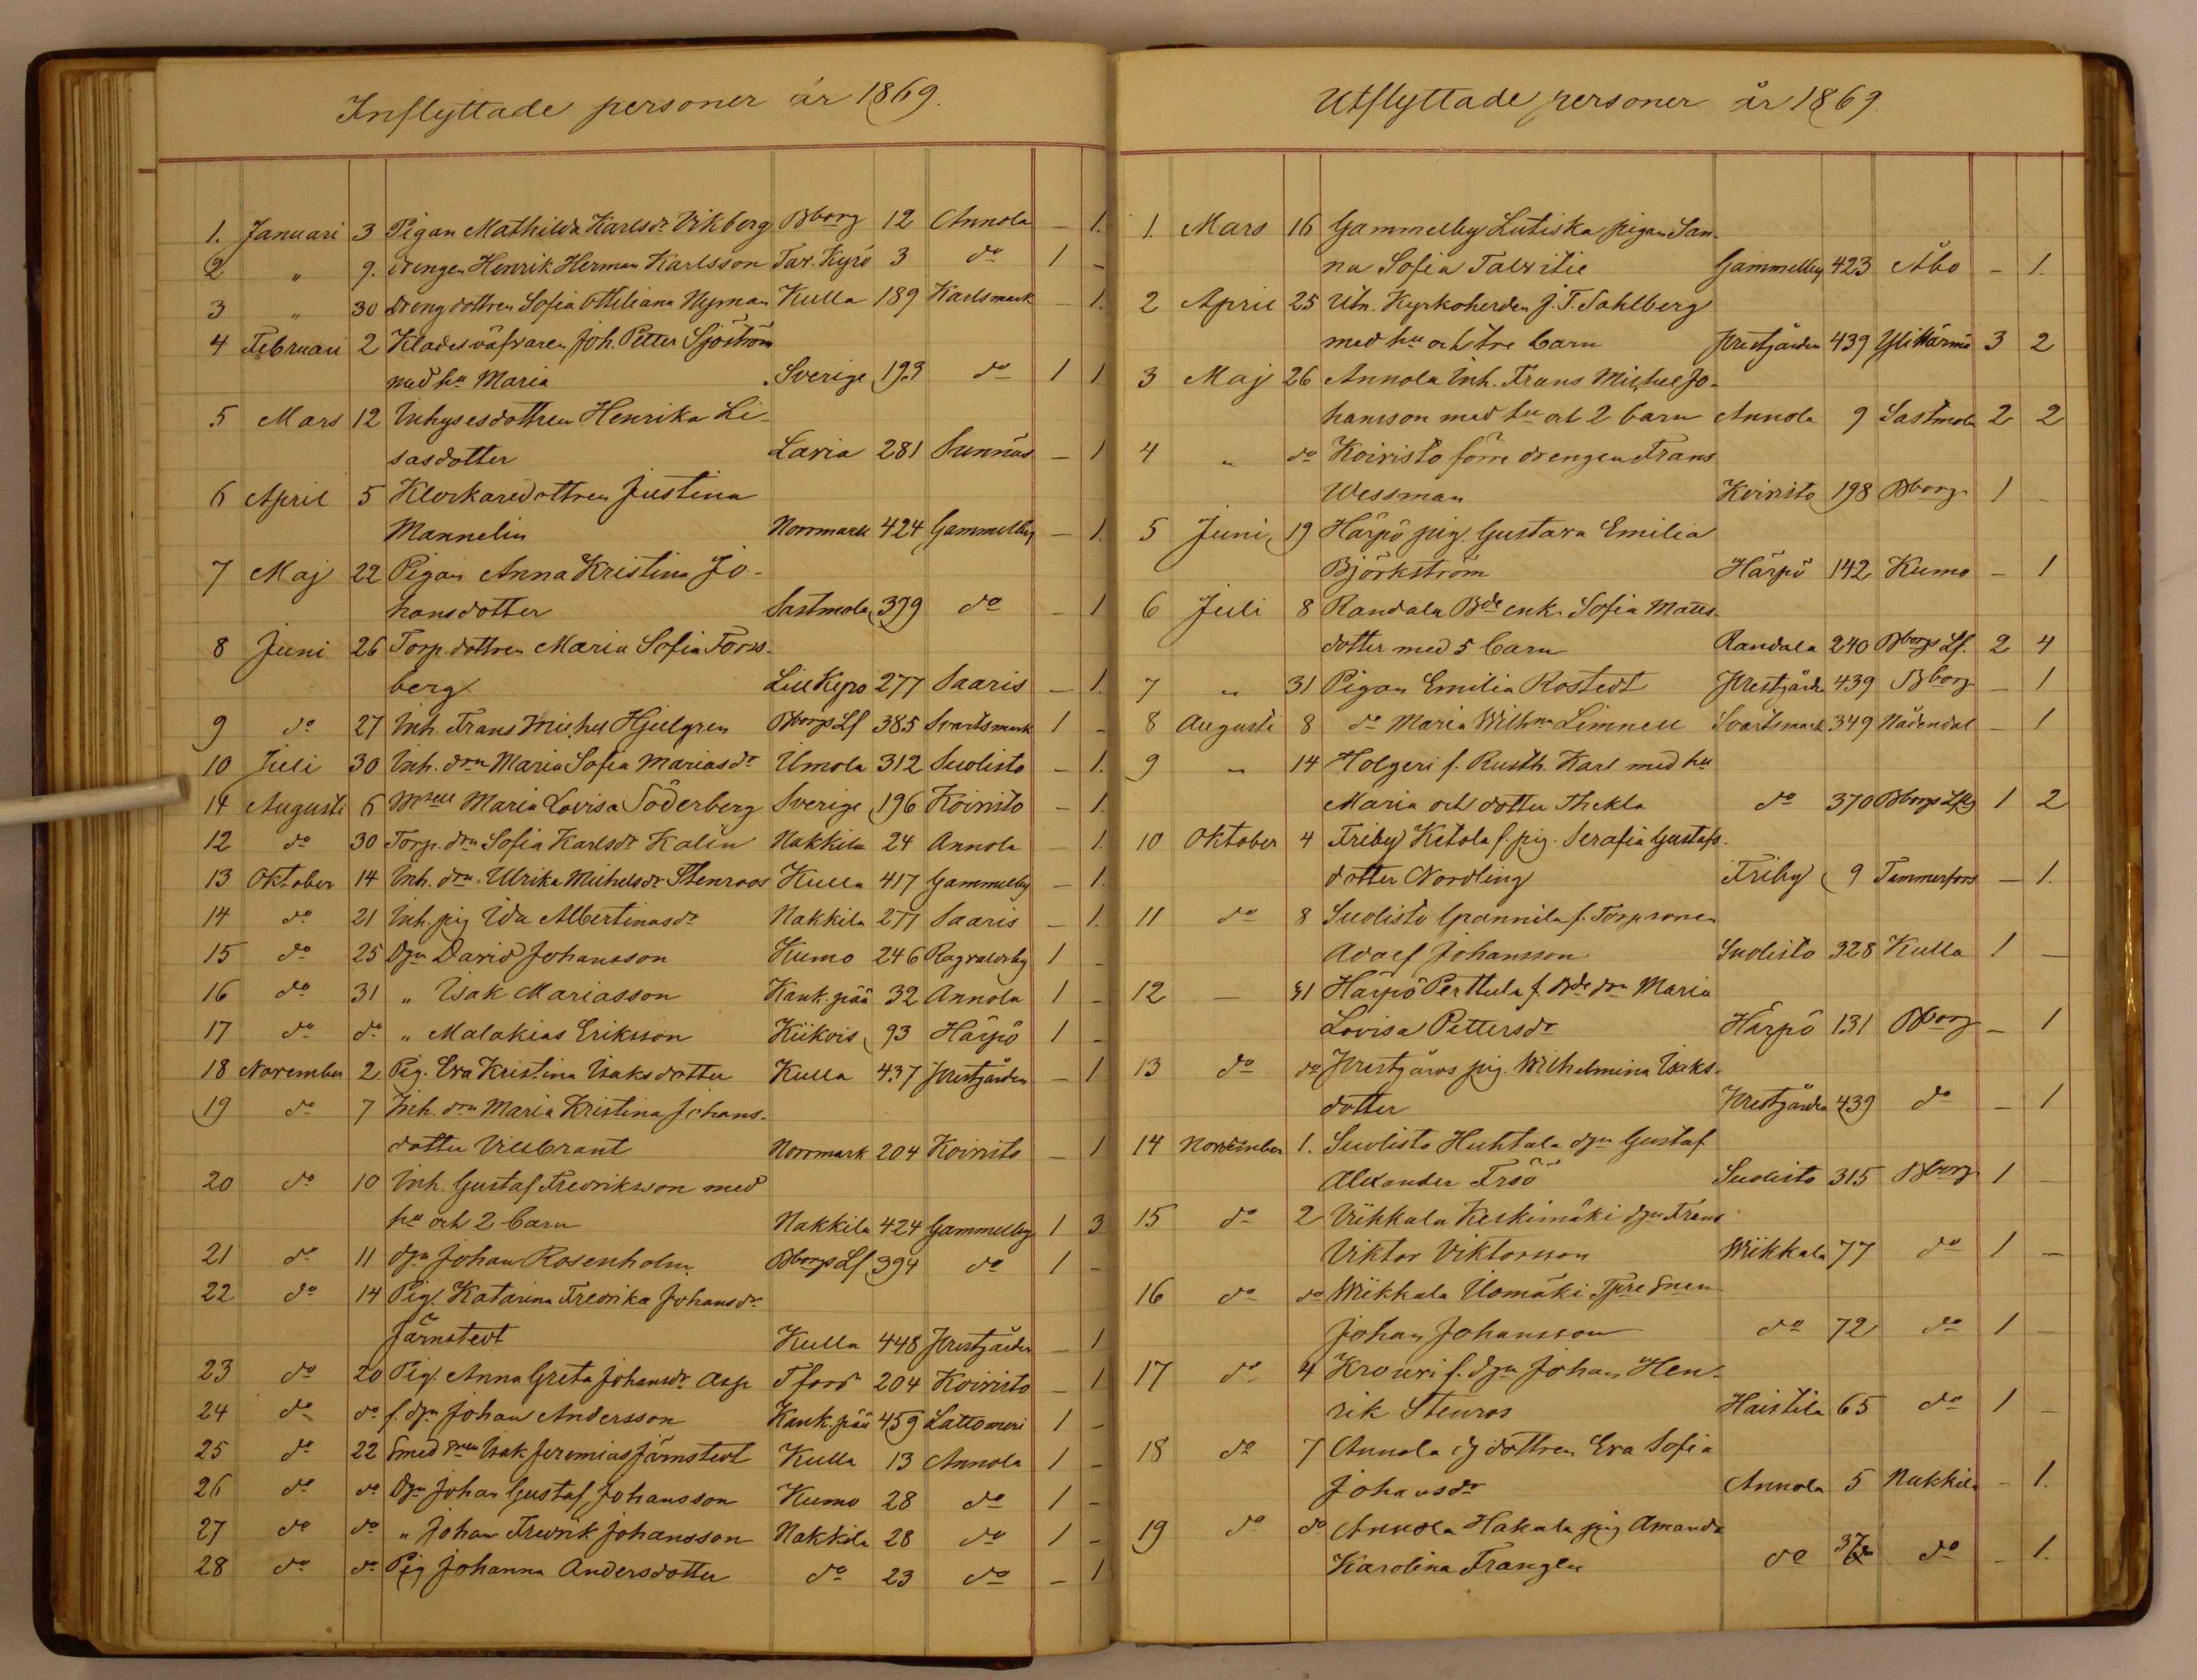 Inflyttade personer år 1869.
1. Januari 3 Pigan Mathilda Karlsdr Vikberg Bborg 12 Annola – 1.
2 " 9. drengen Henrik Herman Karlsson Tav. Kyrö 3 do 1 –
3 " 30 drengdottren Sofia Ottiliana Nyman Kulla 189 Karlsmark – 1.
4 Februari 2 Kladesväfvaren Joh. Petter Sjöström
med hu Maria Sverige 193 do 1 1
5 Mars 12 Inhysesdottren Henrika Li-
sasdotter Lavia 281 Sunnäs – 1
6 April 5 Klockaredottren Justina
Mannelin Norrmark 424 Gammelby – 1.
7 Maj 22 Pigan Anna Kristina Jo-
hansdotter Sastmola 379 do – 1
8 Juni 26 Torp.dottren Maria Sofia Forss-
berg Lill Kyro 277 Saaris – 1.
9 do 27 Inh. Frans Michel Hjulgren Bborgs Lf 385 Svartsmark 1 –
10 Juli 30 Inh. drn Maria Sofia Mariasdr Ulmola 312 Suolisto – 1.
14 Augusti 6 Mselle Maria Lovisa Söderberg Sverige 196 Koivisto – 1.
12 do 30 Torp. drn Sofia Karlsdr Kalin Nakkila 24 Annola – 1.
13 Oktober 14 Inh. drn. Ulrika Michelsdr Stenroos Kulla 417 Gammelby – 1.
14 do 21 Inh. pig Ida Albertinasdr Nakkila 277 Saaris – 1.
15 do 25 Dgn David Johansson Kumo 246 Ragvaldsby 1 –
16 do 31 " Isak Mariasson Kank.pää 32 Annola 1 –
17 do do " Malakias Eriksson Kiikois 93 Härpö 1 –
18 November 2 Pig. Eva Kristina Isaksdotter Kulla 437 Prestgården – 1
19 do 7 Inh. drn Maria Kristina Johans-
dotter Villbrant Norrmark 204 Koivisto – 1
20 do 10 Inh. Gustaf Fredriksson med
hu och 2 barn Nakkila 424 Gammelby 1 3
21 do 11 dgn Johan Rosenholm Bborgs Lf 394 do 1 –
22 do 14 Pig. Katarina Fredrika Johansdr
Järnstedt Kulla 448 Prestgården – 1
23 do 20 Pig. Anna Greta Johansdr Asp Tfors 204 Koivisto – 1
24 do do f. dgn Johan Andersson Kank.pää 459 Lattomeri 1 –
25 do 22 Smed snen Isak Jeremias Järnstedt Kulla 13 Annola 1 –
26 do do Dgn Johan Gustaf Johansson Kumo 28 do 1 –
27 do do " Johan Fredrik Johansson Nakkila 28 do 1 –
28 do do Pig Johanna Andersdotter do 23 do – 1
Utflyttade personer år 1869.
1. Mars 16 Gammelby Lutiska pigan San-
na Sofia Talvitie Gammelby 423 Åbo – 1.
2 April 25 Utn. Kyrkoherden J. T. Sahlberg
med hu och tre barn Prestgården 439 Ylihärmä 3 2
3 Maj 26 Annola Inh. Frans Michel Jo-
hansson med hu och 2 barn Annola 9 Sastmola 2 2
4 " do Koivisto förre drengen Frans
Wessman Koivisto 198 Bborg 1 –
5 Juni 19 Härpö pig. Gustava Emilia
Björkström Härpö 142 Kumo – 1
6 Juli 8 Randala Bde enk. Sofia Matts-
dotter med 5 barn Randala 240 Bborgs Lf. 2 4
7 " 31 Pigan Emilia Rostedt Prestgården 439 Bborg – 1
8 Augusti 8 do Maria Wilhna Limnell Svartsmark 349 Nådendal – 1
9 " 14 Holgeri f. Rusth. Karl med hu
Maria och dotter Thekla do 370 Bborgs Lfg 1 2
10 Oktober 4 Friby Ketola f. pig. Serafia Gustafs-
dotter Nordling Friby 9 Tammerfors – 1.
11 do 8 Suolisto Grannila f. Torpsonen
Adolf Johansson Suolisto 328 Kulla 1 –
12 – 31 Härpö Perttula f. Bde drn Maria
Lovisa Pettersdr Härpö 131 Bborg – 1
13 do do Prestgårds pig. Wilhelmina Isaks-
dotter Prestgården 439 do – 1
14 November 1. Suolisto Huhtala dgn Gustaf
Alexander Fröö Suolisto 315 Bborg 1 –
15 do 2 Viikkala Keskimäki dgn Frans
Viktor Viktorsson Wiikkala 77 do 1 –
16 do do Wiikkala Ilomäki Tpre Snen
Johan Johansson do 72 do 1 –
17 do 4 Krouvi f. dgn Johan Hen-
rik Stenros Haistila 65 do 1 –
18 do 7 Annola dottren Eva Sofia
Johansdr Annola 5 Nakkila – 1.
19 do do Annola Hakala pig Amanda
Karolina Franglen do 37 do – 1.